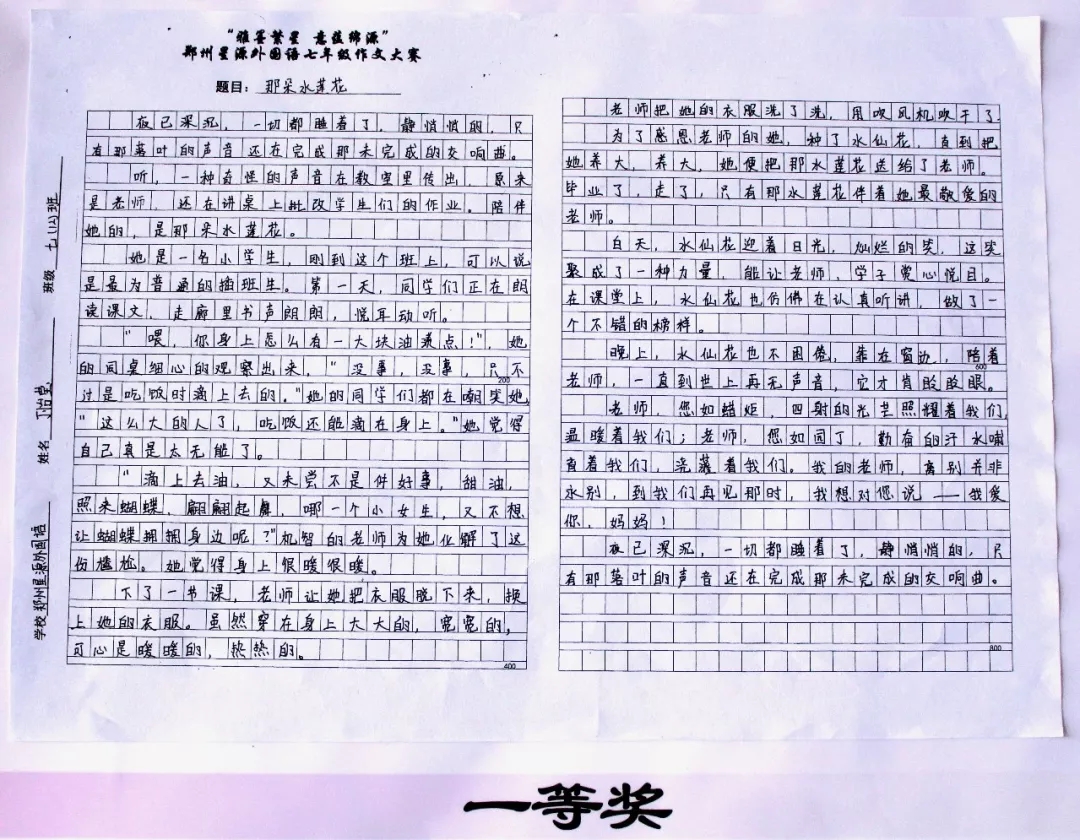 “雅墨繁星 意蕴绵源”
郑州星源外国语七年级作文大赛
题目：那朵水莲花
学校 郑州星源外国语
姓名
班级 七(1)班
夜已深沉，一切都睡着了，静悄悄的，只
有那落叶的声音还在完成那未完成的交响曲。
听，一种奇怪的声音在教室里传出，原来
是老师，还在讲桌上批改学生们的作业。陪伴
她的，是那朵水莲花。
她是一名小学生，刚到这个班上，可以说
是最为普通的插班生。第一天，同学们正在朗
读课文，走廊里书声朗朗，悦耳动听。
“喂，你身上怎么有一大块油渍点！”，她
的同桌细心的观察出来，“没事，没事，只不
过是吃饭时滴上去的。”她的同学们都在嘲笑她
“这么大的人了，吃饭还能滴在身上。”她觉得
自己真是太无能了。
“滴上去油，又未尝不是件好事，甜油，
照来蝴蝶，翩翩起舞，哪一个小女生，又不想
让蝴蝶拥拥身边呢？”机智的老师为她化解了这
份尴尬。她觉得身上很暖很暖。
下了一书课，老师让她把衣服脱下来，换
上她的衣服。虽然穿在身上大大的，宽宽的，
可心是暖暖的，热热的。
200
400
老师把她的衣服洗了洗，用吹风机吹干了.
为了感恩老师的她，种了水仙花，直到把
她养大，养大，她便把那水莲花送给了老师。
毕业了，走了，只有那水莲花伴着她最敬爱的
老师。
白天，水仙花迎着日光，灿烂的笑，这笑
聚成了一种力量，能让老师、学子赏心悦目。
在课堂上，水仙花也仿佛在认真听讲，做了一
个不错的榜样。
晚上，水仙花也不困倦，靠在窗边，陪着
老师，一直到世上再无声音，它才肯眨眨眼。
老师，您如蜡炬，四射的光芒照耀着我们，
温暖着我们；老师，您如园丁，勤奋的汗水哺
育着我们，浇灌着我们。我的老师，离别并非
永别，到我们再见那时，我想对您说——我爱
你，妈妈！
夜已深沉，一切都睡着了，静悄悄的，只
有那落叶的声音还在完成那未完成的交响曲。
600
800
一等奖